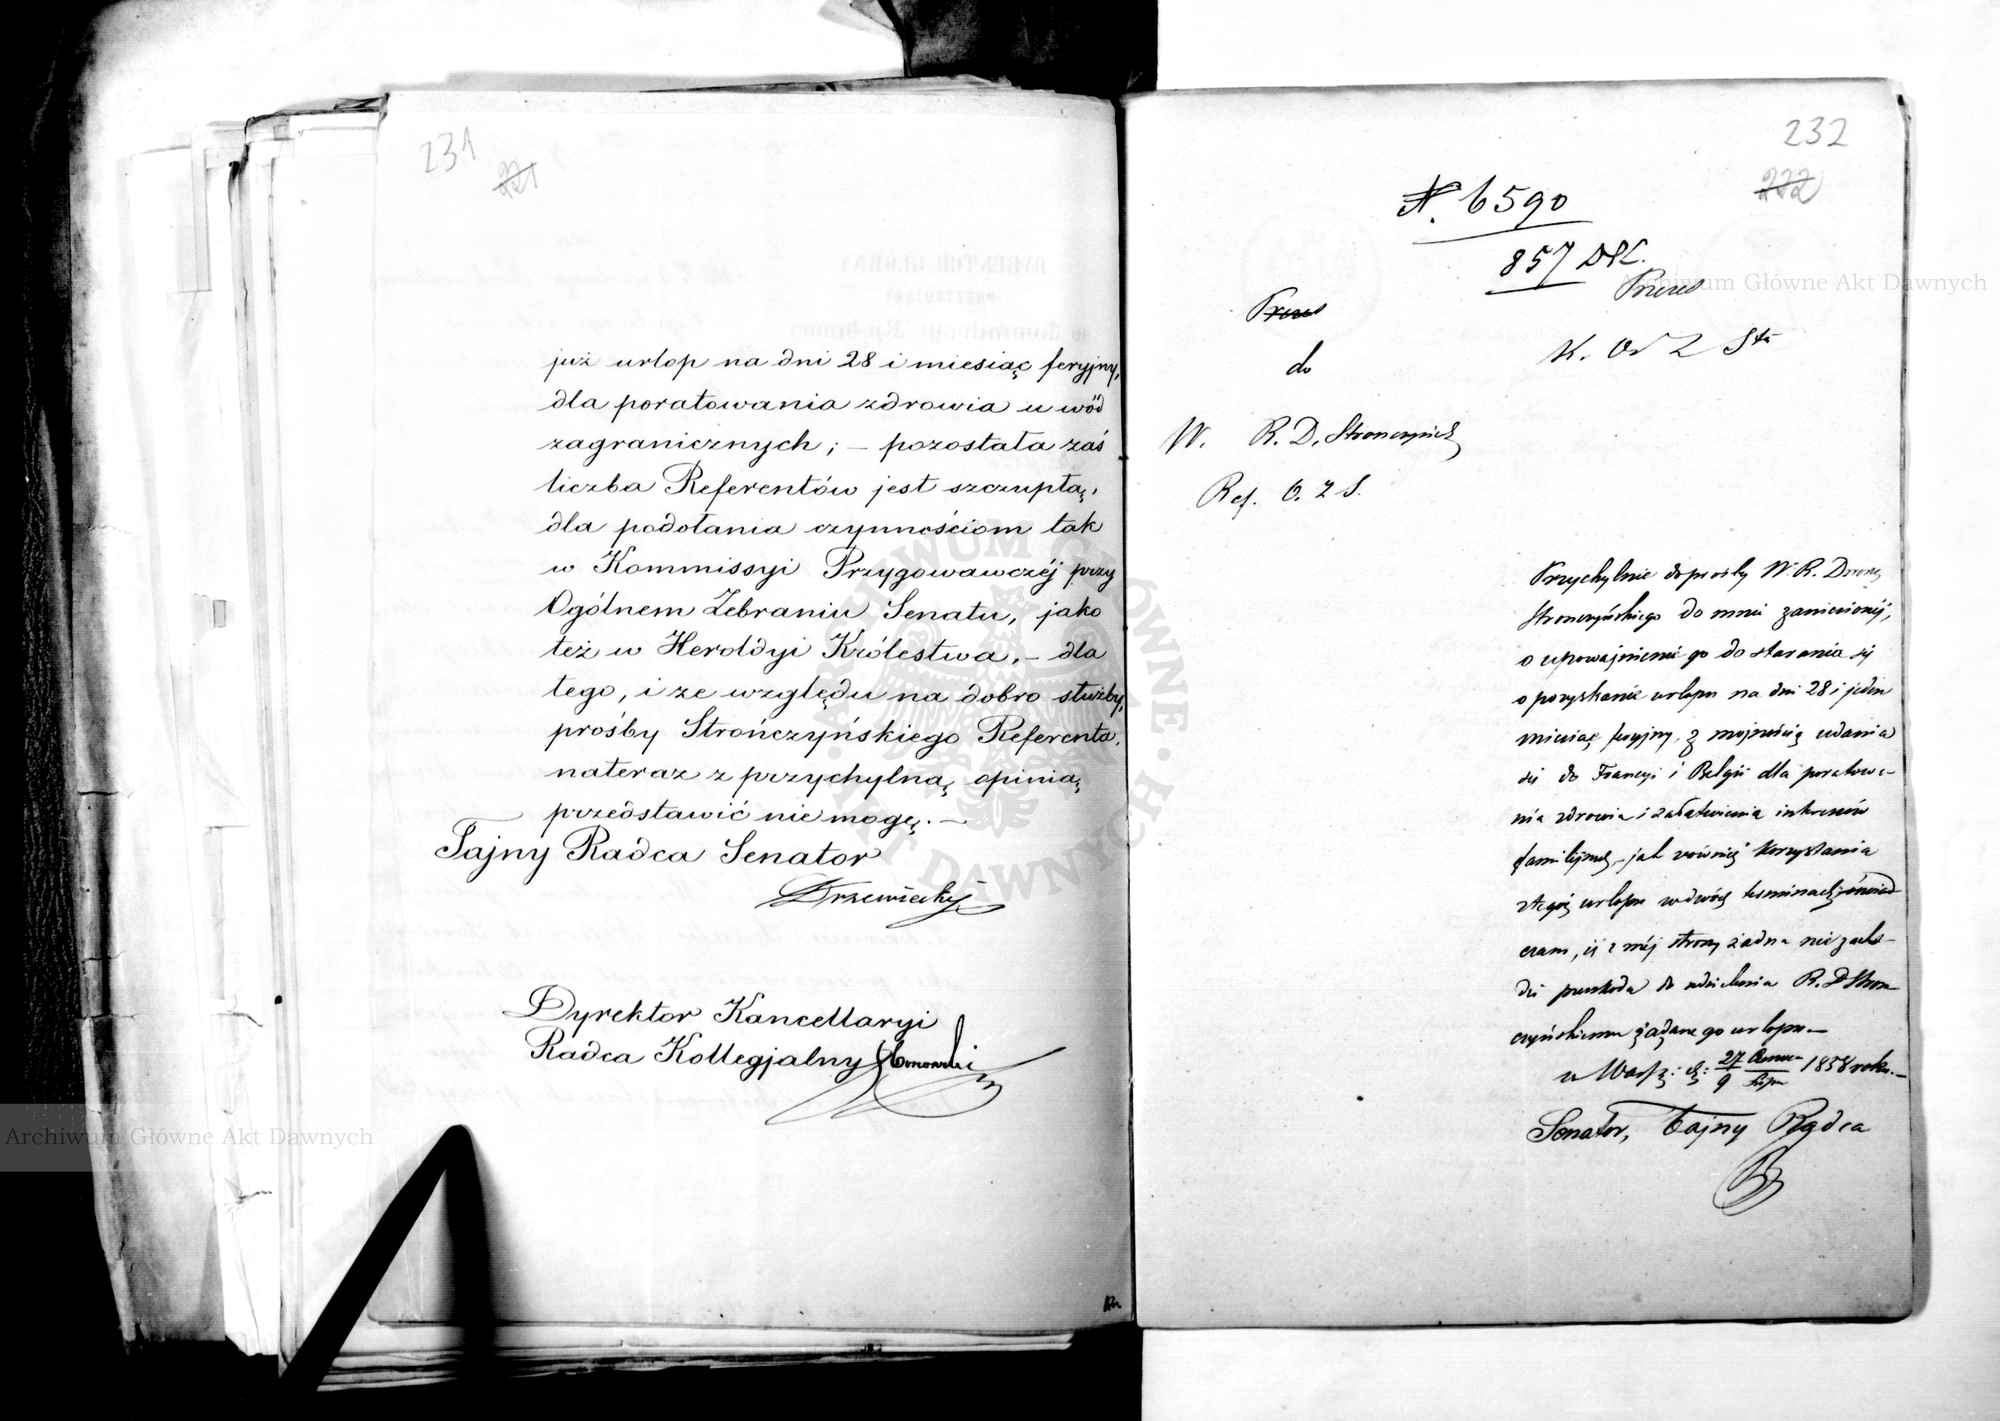 231
221
już urlop na dni 28 i miesiąc feryjny,
dla poratowania zdrowia u wód
zagranicznych; — pozostała zaś
liczba Referentów jest szczupłą,
dla podołania czynnościom tak
w Kommissyi Przygowawczéj przy
Ogólnem Zebraniu Senatu, jako
też w Heroldyi Królestwa, — dla
tego, i ze względu na dobro służby,
prośby Strończyńskiego Referenta,
nateraz z przychylną opinią
przedstawić nie mogę. —
Tajny Radca Senator
Drzewiecki
Dyrektor Kancellaryi
Radca Kollegjalny
232
222
N. 6590
857
Prezes
Prezes
do
W. R. D. Stronczyński
Ref. O. Z S.
Przychylnie do prośby W. R. Dworu
Stronczyńskiego do mnie zaniesionéj,
o upoważnienie go do starania się
o pozyskanie urlopu na dni 28 i jeden
miesiąc feryjny, z możnością udania
się do Francyi i Belgii dla poratowa-
nia zdrowia i załatwienia interesów
familijnych, — jak również korzystania
z tegoż urlopu w dwóch terminach, oświad-
czam, iż z méj strony żadna nie zacho-
dzi przeszkoda do udzielenia R. D. Stron-
czyńskiemu żądanego urlopu. —
w Warsz: d: 27 Czerw- / 9 Lipca 1858 roku. —
Senator, Tajny Radca
Archiwum Główne Akt Dawnych
Archiwum Główne Akt Dawnych
ARCHIWUM GŁÓWNE AKT DAWNYCH